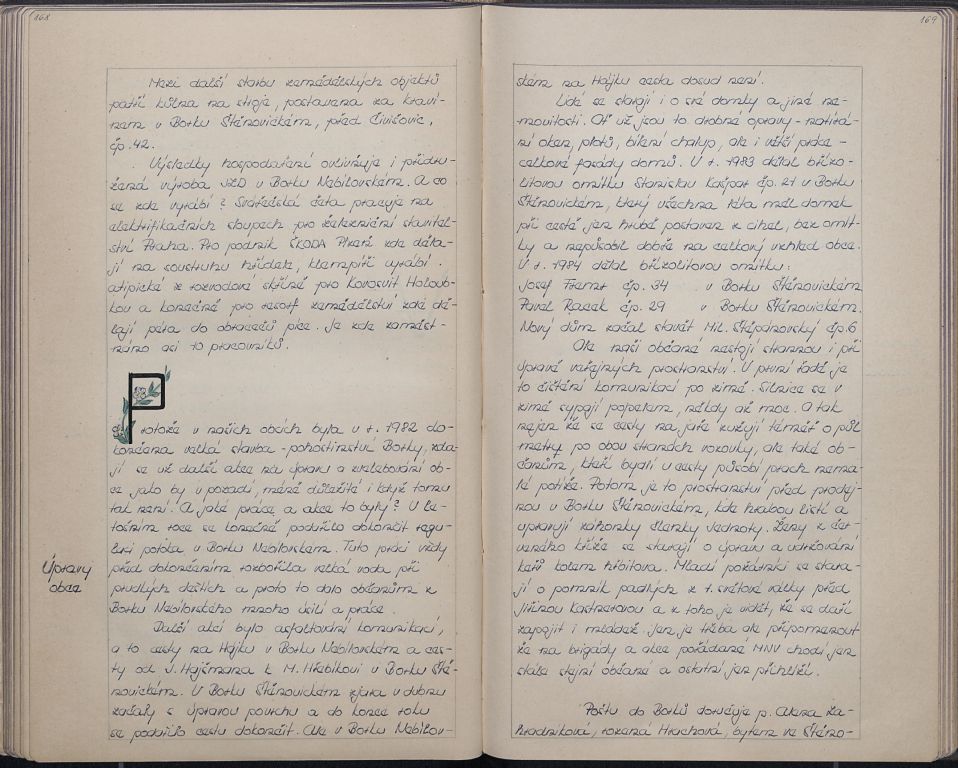 168
Mezi další stavbu zemědělských objektů
patří kůlna na stroje, postavena za kraví-
nem v Borku Štěnovickém, před Čivišovic,
čp. 42.
Výsledky hospodaření ovlivňuje i přidru-
žená výroba JZD v Borku Nebílovském. A co
se zde vyrábí? Svářečská četa pracuje na
elektrifikačních sloupech pro železniční stavitel-
ství Praha. Pro podnik ŠKODA Plzeň zde děla-
jí na soustruhu hřídele, klempíři vyrábí
atipické rozvodové skříně pro Kovosvit Holoub-
kov a konečně pro resort zemědělství zde dě-
lají péra do obracečů píce. Je zde zaměst-
náno asi 10 pracovníků.
Protože v našich obcích byla v r. 1982 do-
končena velká stavba - pohostinství Borky, zda-
jí se už další akce na úpravu a zvelebování ob-
ce jako by v pozadí, méně důležité i když tomu
tak není. A jaké práce a akce to byly? V le-
tošním roce se konečně podařilo dokončit regu-
laci potoka v Borku Nebílovském. Tuto práci vždy
před dokončením rozbořila velká voda při
prudkých deštích a proto to dalo občanům z
Borku Nebílovského mnoho úsilí a práce.
Úpravy
obce
Další akcí bylo asfaltování komunikací,
a to cesty na Hájku v Borku Nebílovském a ces-
ty od J. Hajšmana k M. Hřebíkovi v Borku Ště-
novickém. V Borku Štěnovickém zjara v dubnu
začaly s úpravou povrchu a do konce roku
se podařilo cestu dokončit. Ale v Borku Nebílov-
169
ském na Hájku cesta dosud není.
Lidé se starají i o své domky a jiné ne-
movitosti. Ať už jsou to drobné opravy - natírá-
ní oken, plotů, bílení chalup, ale i větší práce -
celkové fasády domů. V r. 1983 dělal břízo-
litovou omítku Stanislav Kašpar čp. 21 v Borku
Štěnovickém, který všechna léta měl domek
při cestě jen hrubě postaven z cihel, bez omít-
ky a nepůsobil dobře na celkový vzhled obce.
V r. 1984 dělal břízolitovou omítku:
Josef Franz čp. 34 v Borku Štěnovickém
Pavel Racek čp. 29 v Borku Štěnovickém.
Nový dům začal stavět Mil. Štěpánovský čp. 6
Ale naši občané nestojí stranou i při
úpravě veřejných prostranství. V první řadě je
to čištění komunikací po zimě. Silnice se v
zimě sypají popelem, někdy až moc. A tak
nejen že se cesty na jaře zužují téměř o půl
metry po obou stranách vozovky, ale také ob-
čanům, kteří bydlí u cesty působí prach nema-
lé potíže. Potom je to prostranství před prodej-
nou v Borku Štěnovickém, kde hrabou listí a
upravují záhonky členky Jednoty. Ženy z čer-
veného kříže se starají o úpravu a udržování
keřů kolem hřbitova. Mladí požárníci se stara-
jí o pomník padlých z I. světové války před
Jiřinou Kastnerovou a z toho je vidět, že se dají
zapojit i mládež. Jen je třeba ale připomenout
že na brigády a akce pořádané MNV chodí jen
stále stejní občané a ostatní jen přihlíží.
Poštu do Borků doručuje p. Alena Za-
hradníková, rozená Hrachová, bytem ve Štěno-